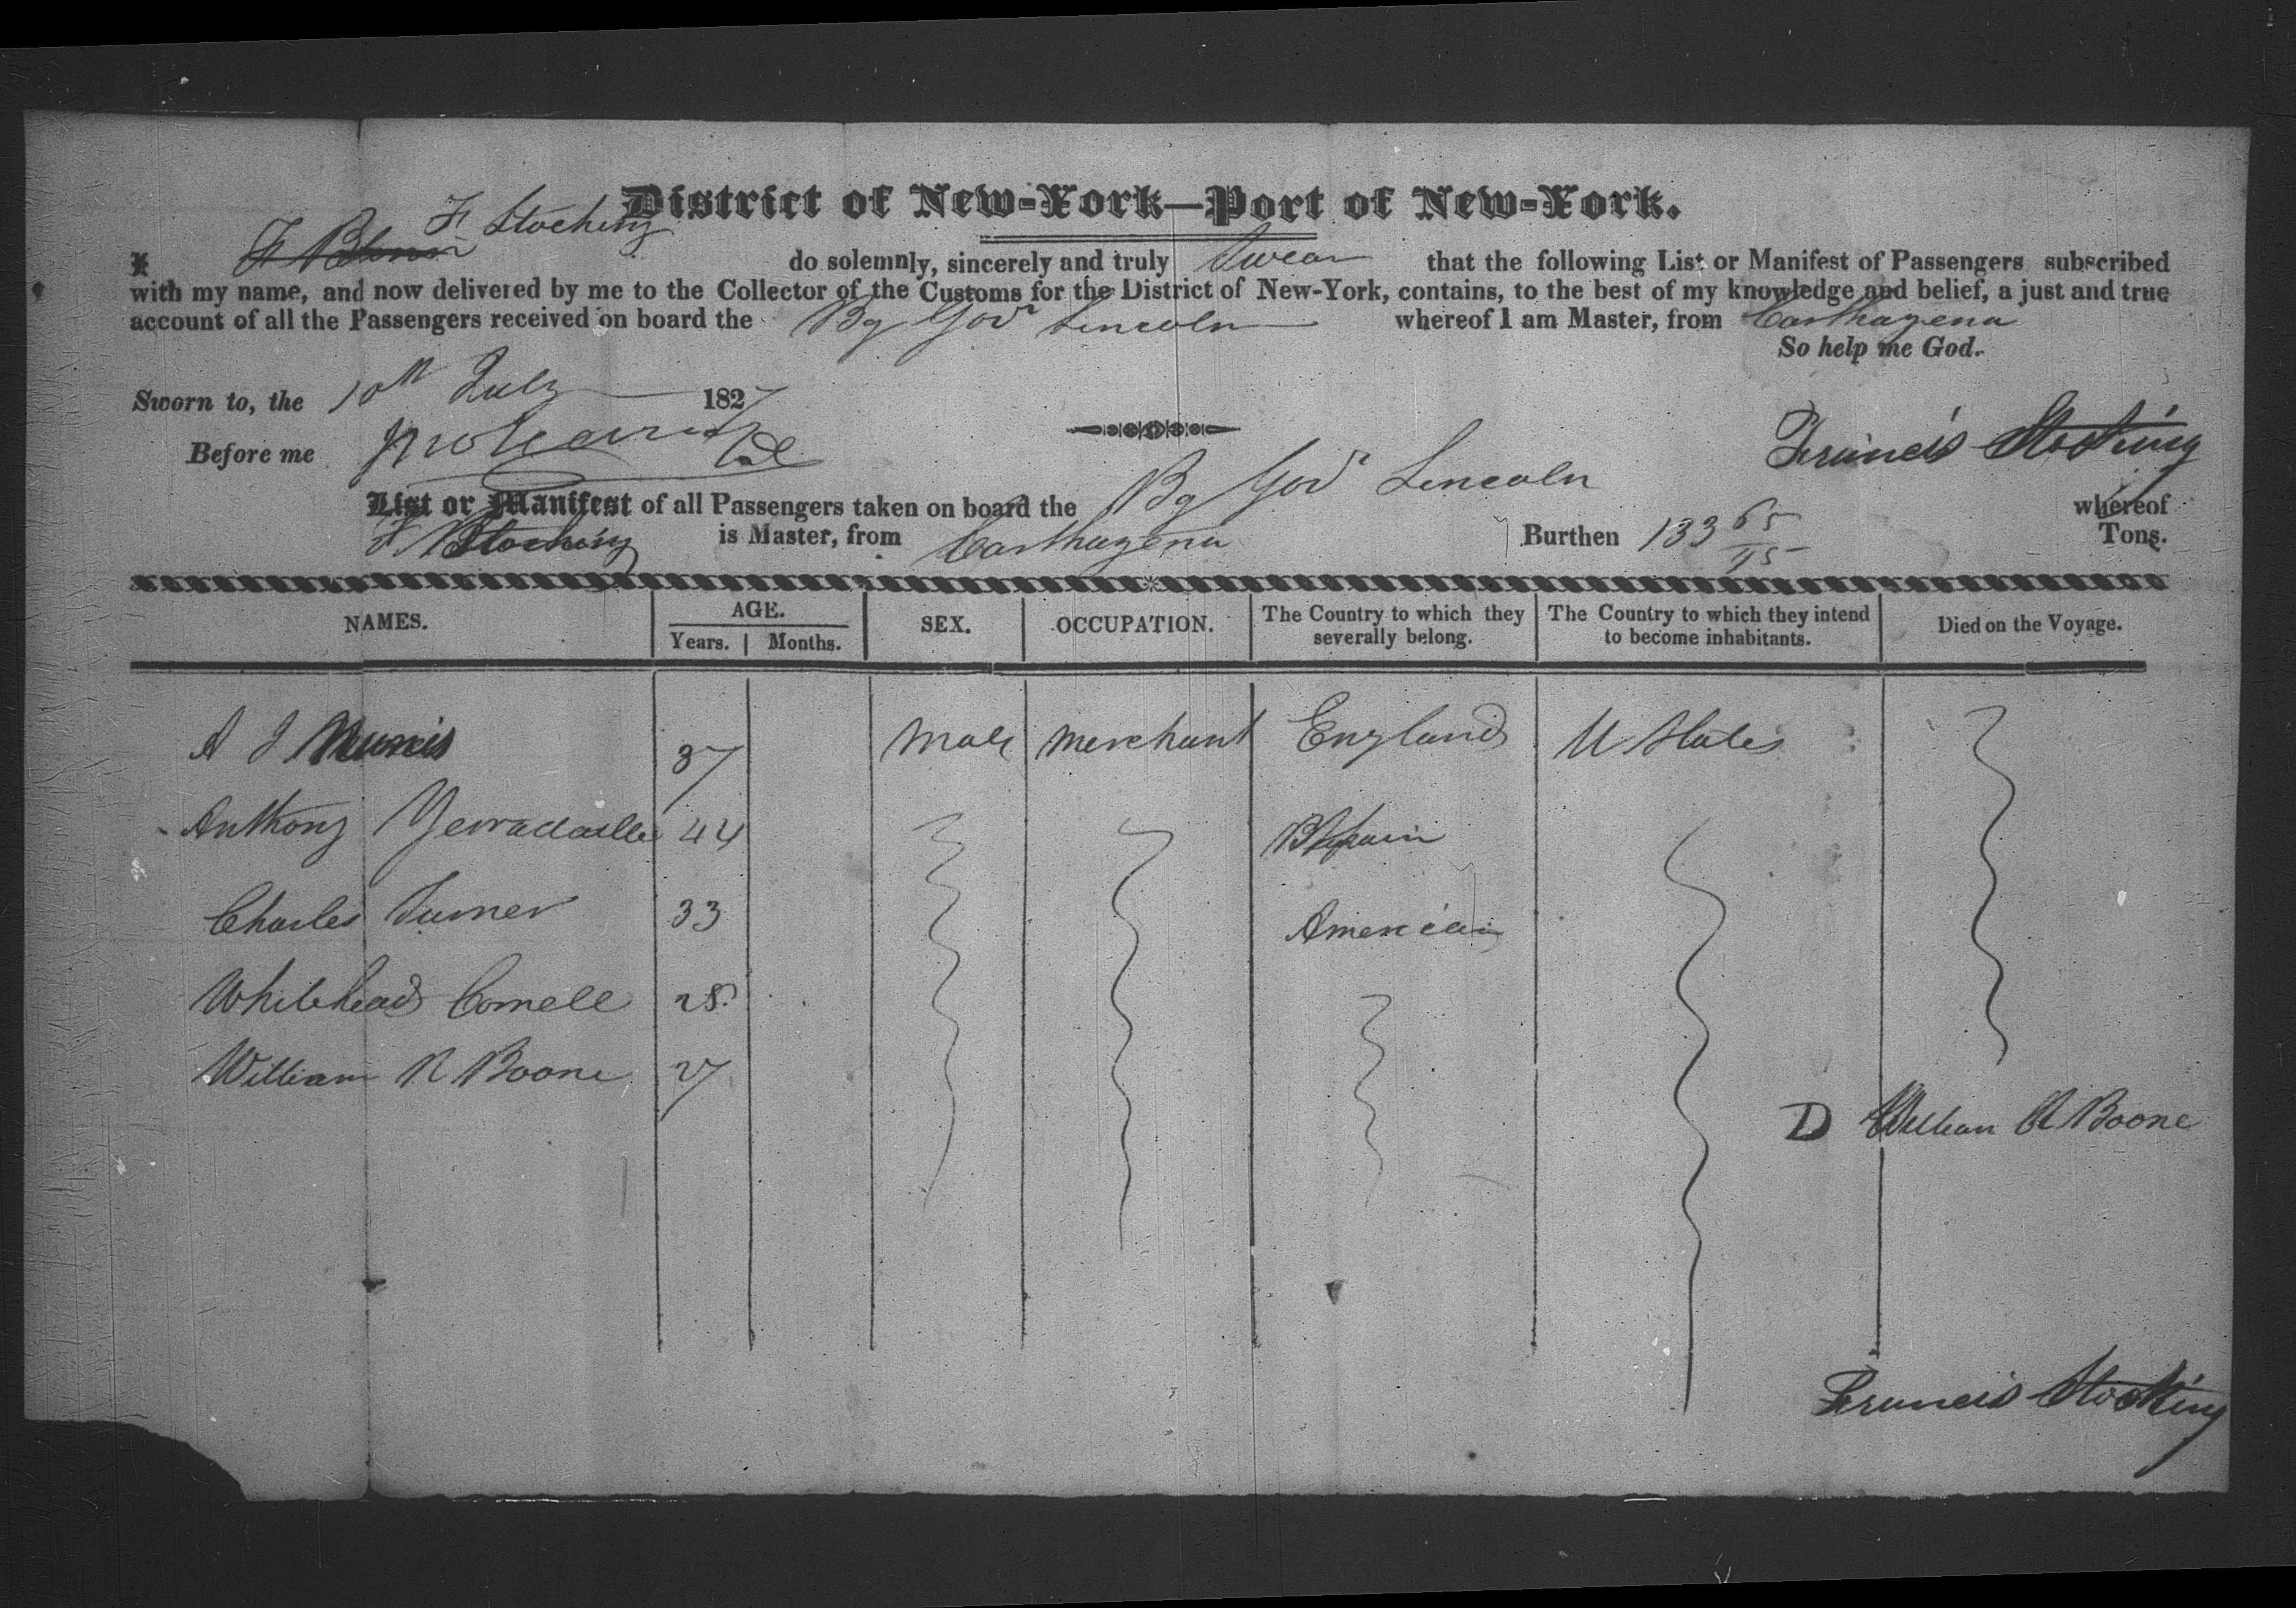 District of New-York—Port of New-York.
F Stocking
I do solemnly, sincerely and truly Swear that the following List or Manifest of Passengers subscribed
with my name, and now delivered by me to the Collector of the Customs for the District of New-York, contains, to the best of my knowledge and belief, a just and true
account of all the Passengers received on board the Bg Govr Lincoln whereof I am Master, from Carthagena
So help me God.
Sworn to, the 10th July 1827
Before me
Francis Stocking
List or Manifest of all Passengers taken on board the Bg Govr Lincoln whereof
F Stocking is Master, from Carthagena Burthen 133 65/95 Tons.
NAMES. AGE. Years. Months. SEX. OCCUPATION. The Country to which they severally belong. The Country to which they intend to become inhabitants. Died on the Voyage.
A J 37 Male Merchant England U States
Anthony 44
Charles Turner 33 American
Whitehead Cornell 28
William R Boone 27
D William R Boone
Francis Stocking